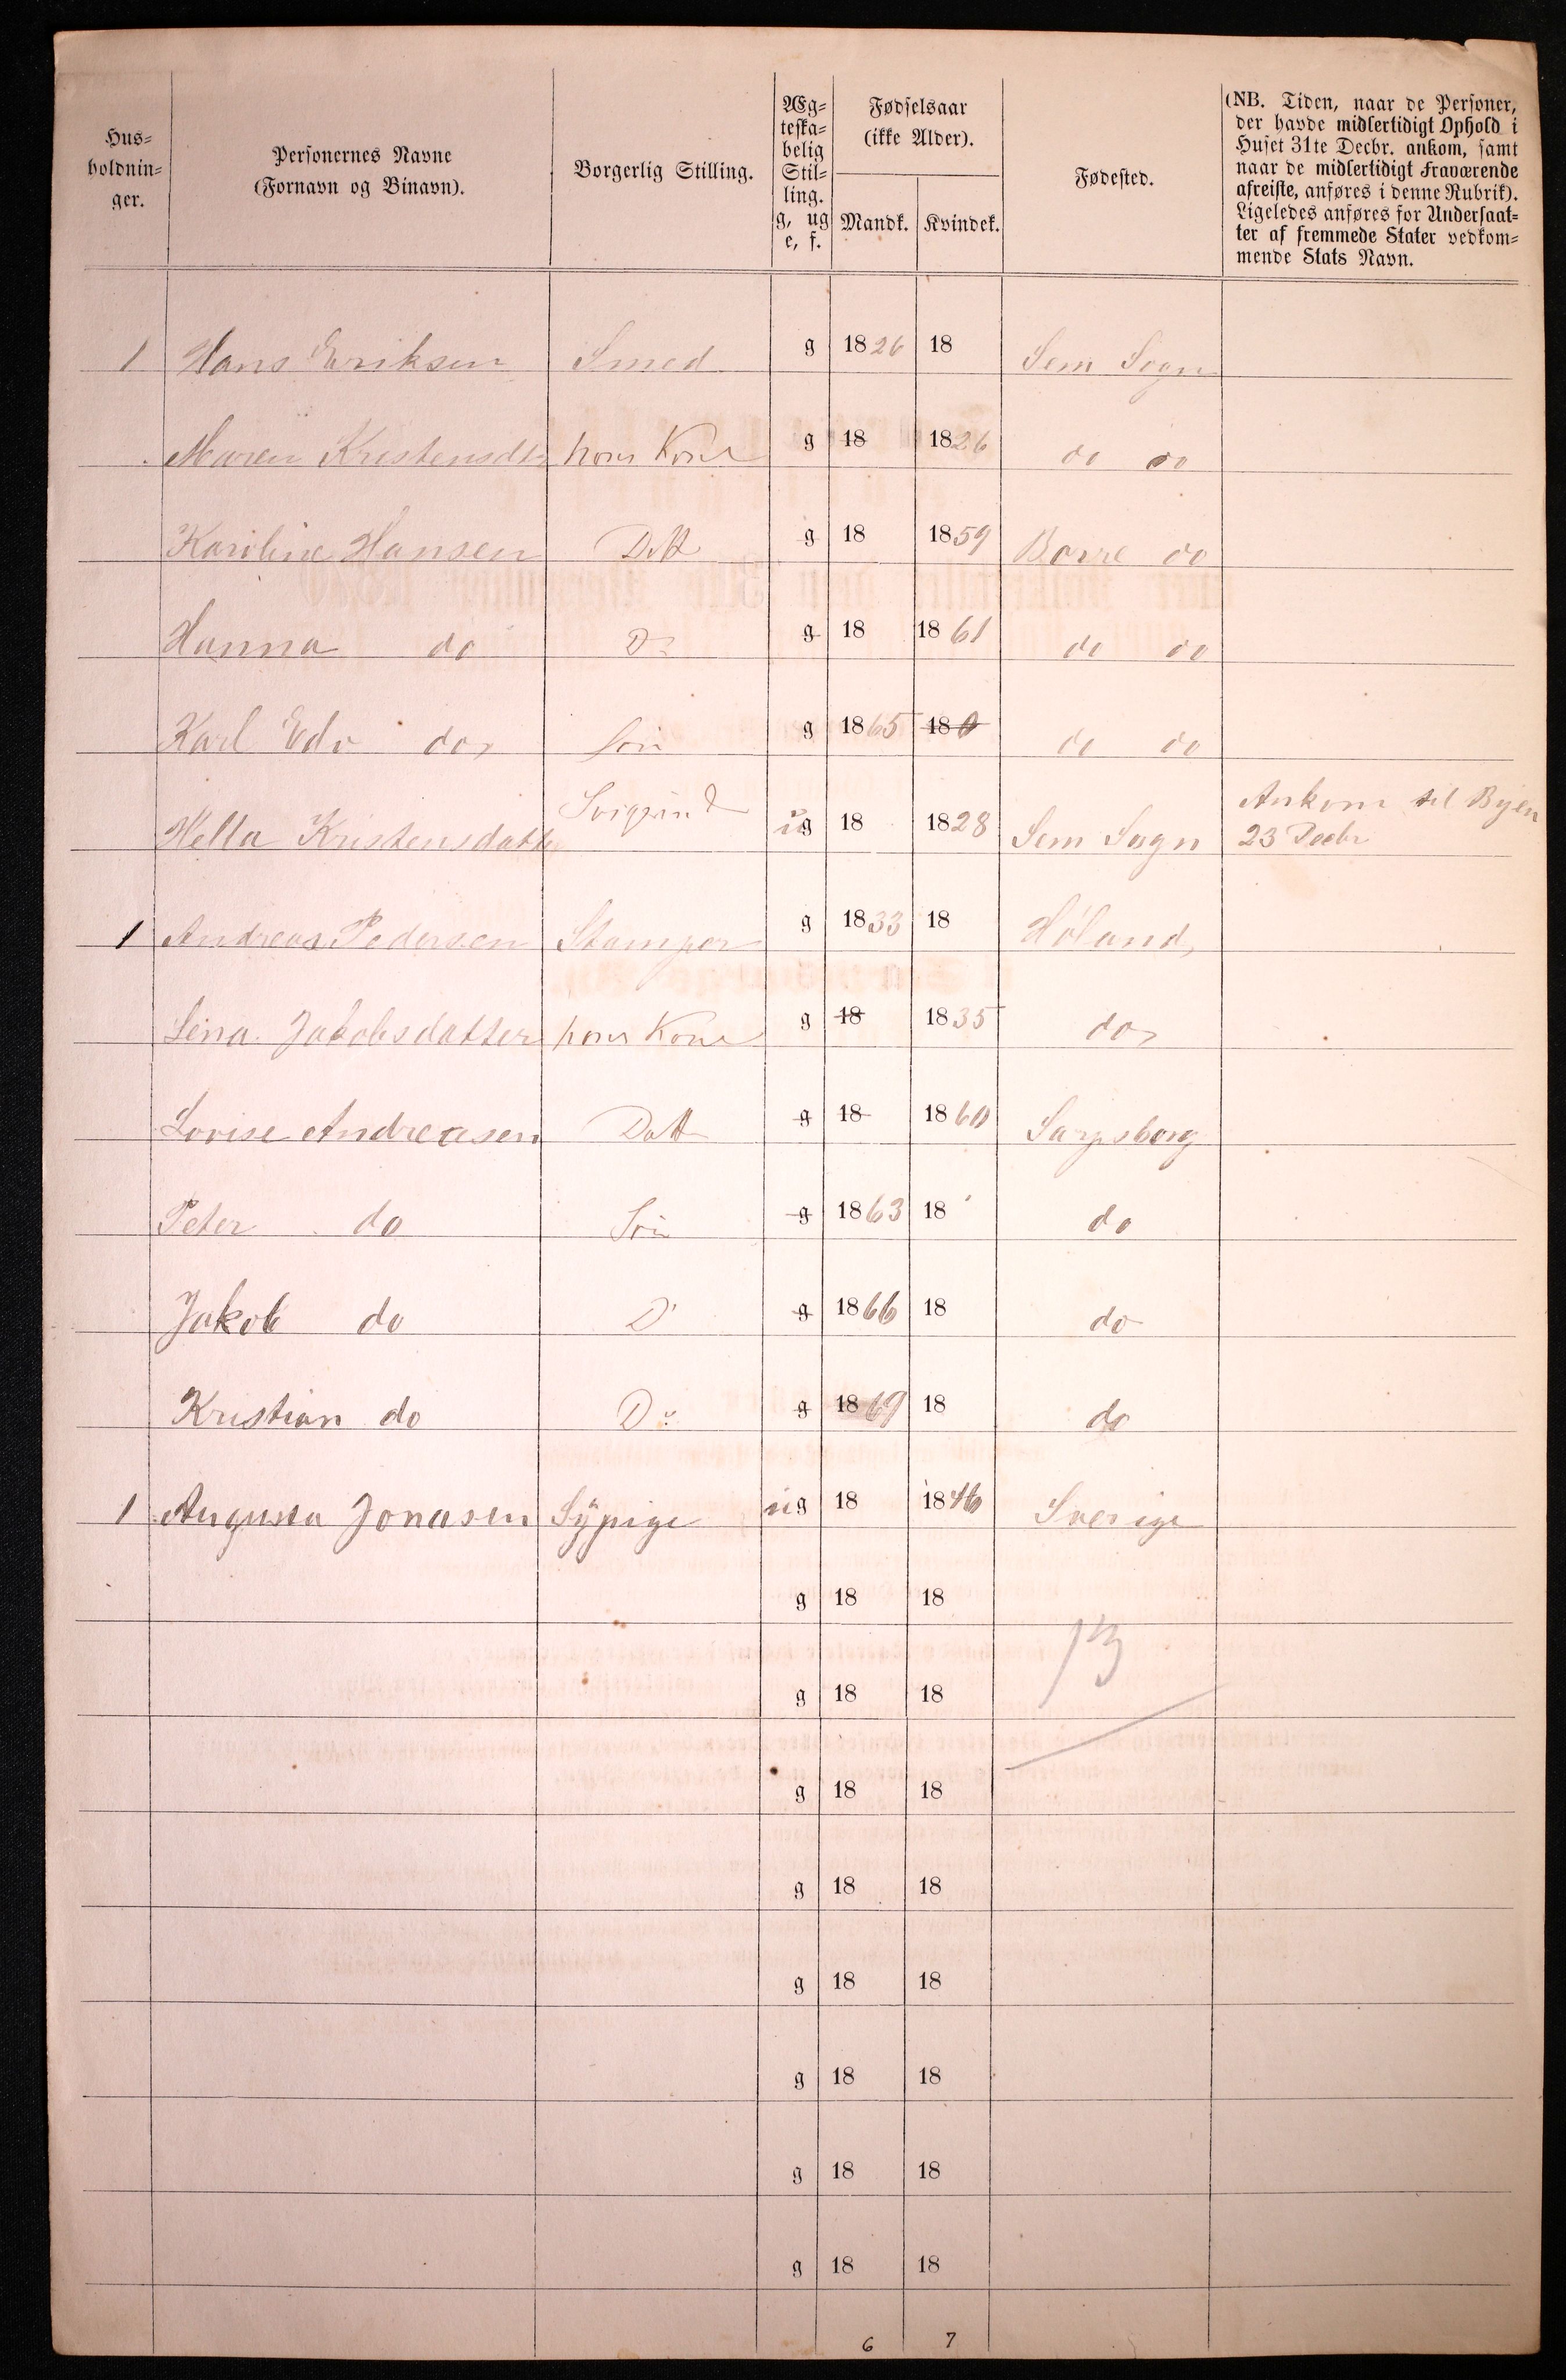 Hus-
holdnin-
ger.
Personernes Navne
(Fornavn og Binavn).
Borgerlig Stilling.
Æg-
teska-
belig
Stil-
ling.
g, ug
e, f.
Fødselsaar
(ikke Alder).
Mandk. Kvindek.
Fødested.
(NB. Tiden, naar de Personer,
der havde midlertidigt Ophold i
Huset 31te Decbr. ankom, samt
naar de midlertidigt Fraværende
afreiste, anføres i denne Rubrik).
Ligeledes anføres for Undersaat-
ter af fremmede Stater vedkom-
mende Stats Navn.
1 Hans Eriksen Smed g 1826 18 Sem Sogn
Maren Kristensdtr hans Kone g 18 1826 do do
Karoline Hansen Datt g 18 1859 Borre do
Hanna do Do g 18 1861 do do
Karl Edv do, Sön g 1865 18 do do
Hella Kristensdatter ug 18 1828 Sem Sogn Ankom til Byen
23 Decbr
1 Andreas Pedersen Stamper g 1833 18 Höland,
Lina Jakobsdatter hans Kone g 18 1835 do,
Lovise Andreasen Datt g 18 1860 Sarpsborg
Peter do Sön g 1863 18 do
Jakob do D g 1866 18 do
Kristian do Do g 1869 18 do
1 Augusta Jonasen Sÿpige ug 18 1846 Sverige
g 18 18
g 18 18
13
g 18 18
g 18 18
g 18 18
g 18 18
g 18 18
g 18 18
6 7